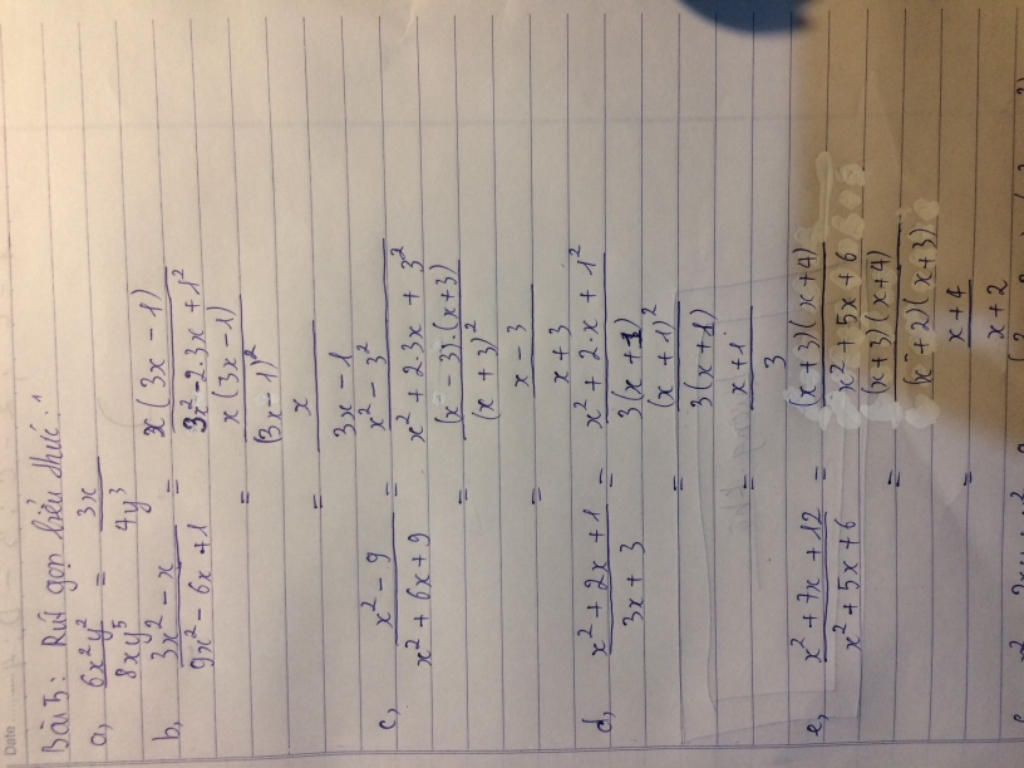 Date
Bài 5: Rút gọn biểu thức:
a, 6x²y²/8xy⁵ = 3x/4y³
b, 3x² - x/9x² - 6x + 1 = x(3x - 1)/3x² - 2.3x + 1²
= x(3x - 1)/(3x - 1)²
= x/3x - 1
c, x² - 9/x² + 6x + 9 = x² - 3²/x² + 2.3x + 3²
= (x - 3).(x + 3)/(x + 3)²
= x - 3/x + 3
d, x² + 2x + 1/3x + 3 = x² + 2.x + 1²/3(x + 1)
= (x + 1)²/3(x + 1)
= x + 1/3
e, x² + 7x + 12/x² + 5x + 6 = (x + 3)(x + 4)/x² + 5x + 6
= (x + 3)(x + 4)/(x + 2)(x + 3)
= x + 4/x + 2